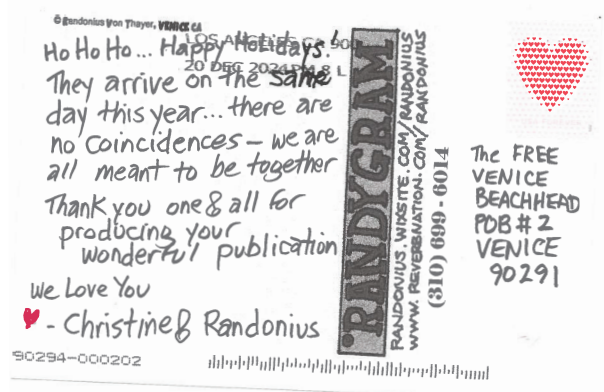 © Randonius Von Thayer, VENICE CA
LOS ANGELES CA 900
20 DEC 2024 PM 8 L
Ho Ho Ho... Happy Holidays!
They arrive on the same
day this year... there are
no coincidences – we are
all meant to be together
Thank you one & all for
producing your
wonderful publication
we Love You
- Christine & Randonius
90294-000202
RANDYGRAM
RANDONIUS.WIXSITE.COM/RANDONIUS
WWW.REVERBNATION.COM/RANDONIUS
(310) 699-6014
The FREE
VENICE
BEACHHEAD
POB # 2
VENICE
90291